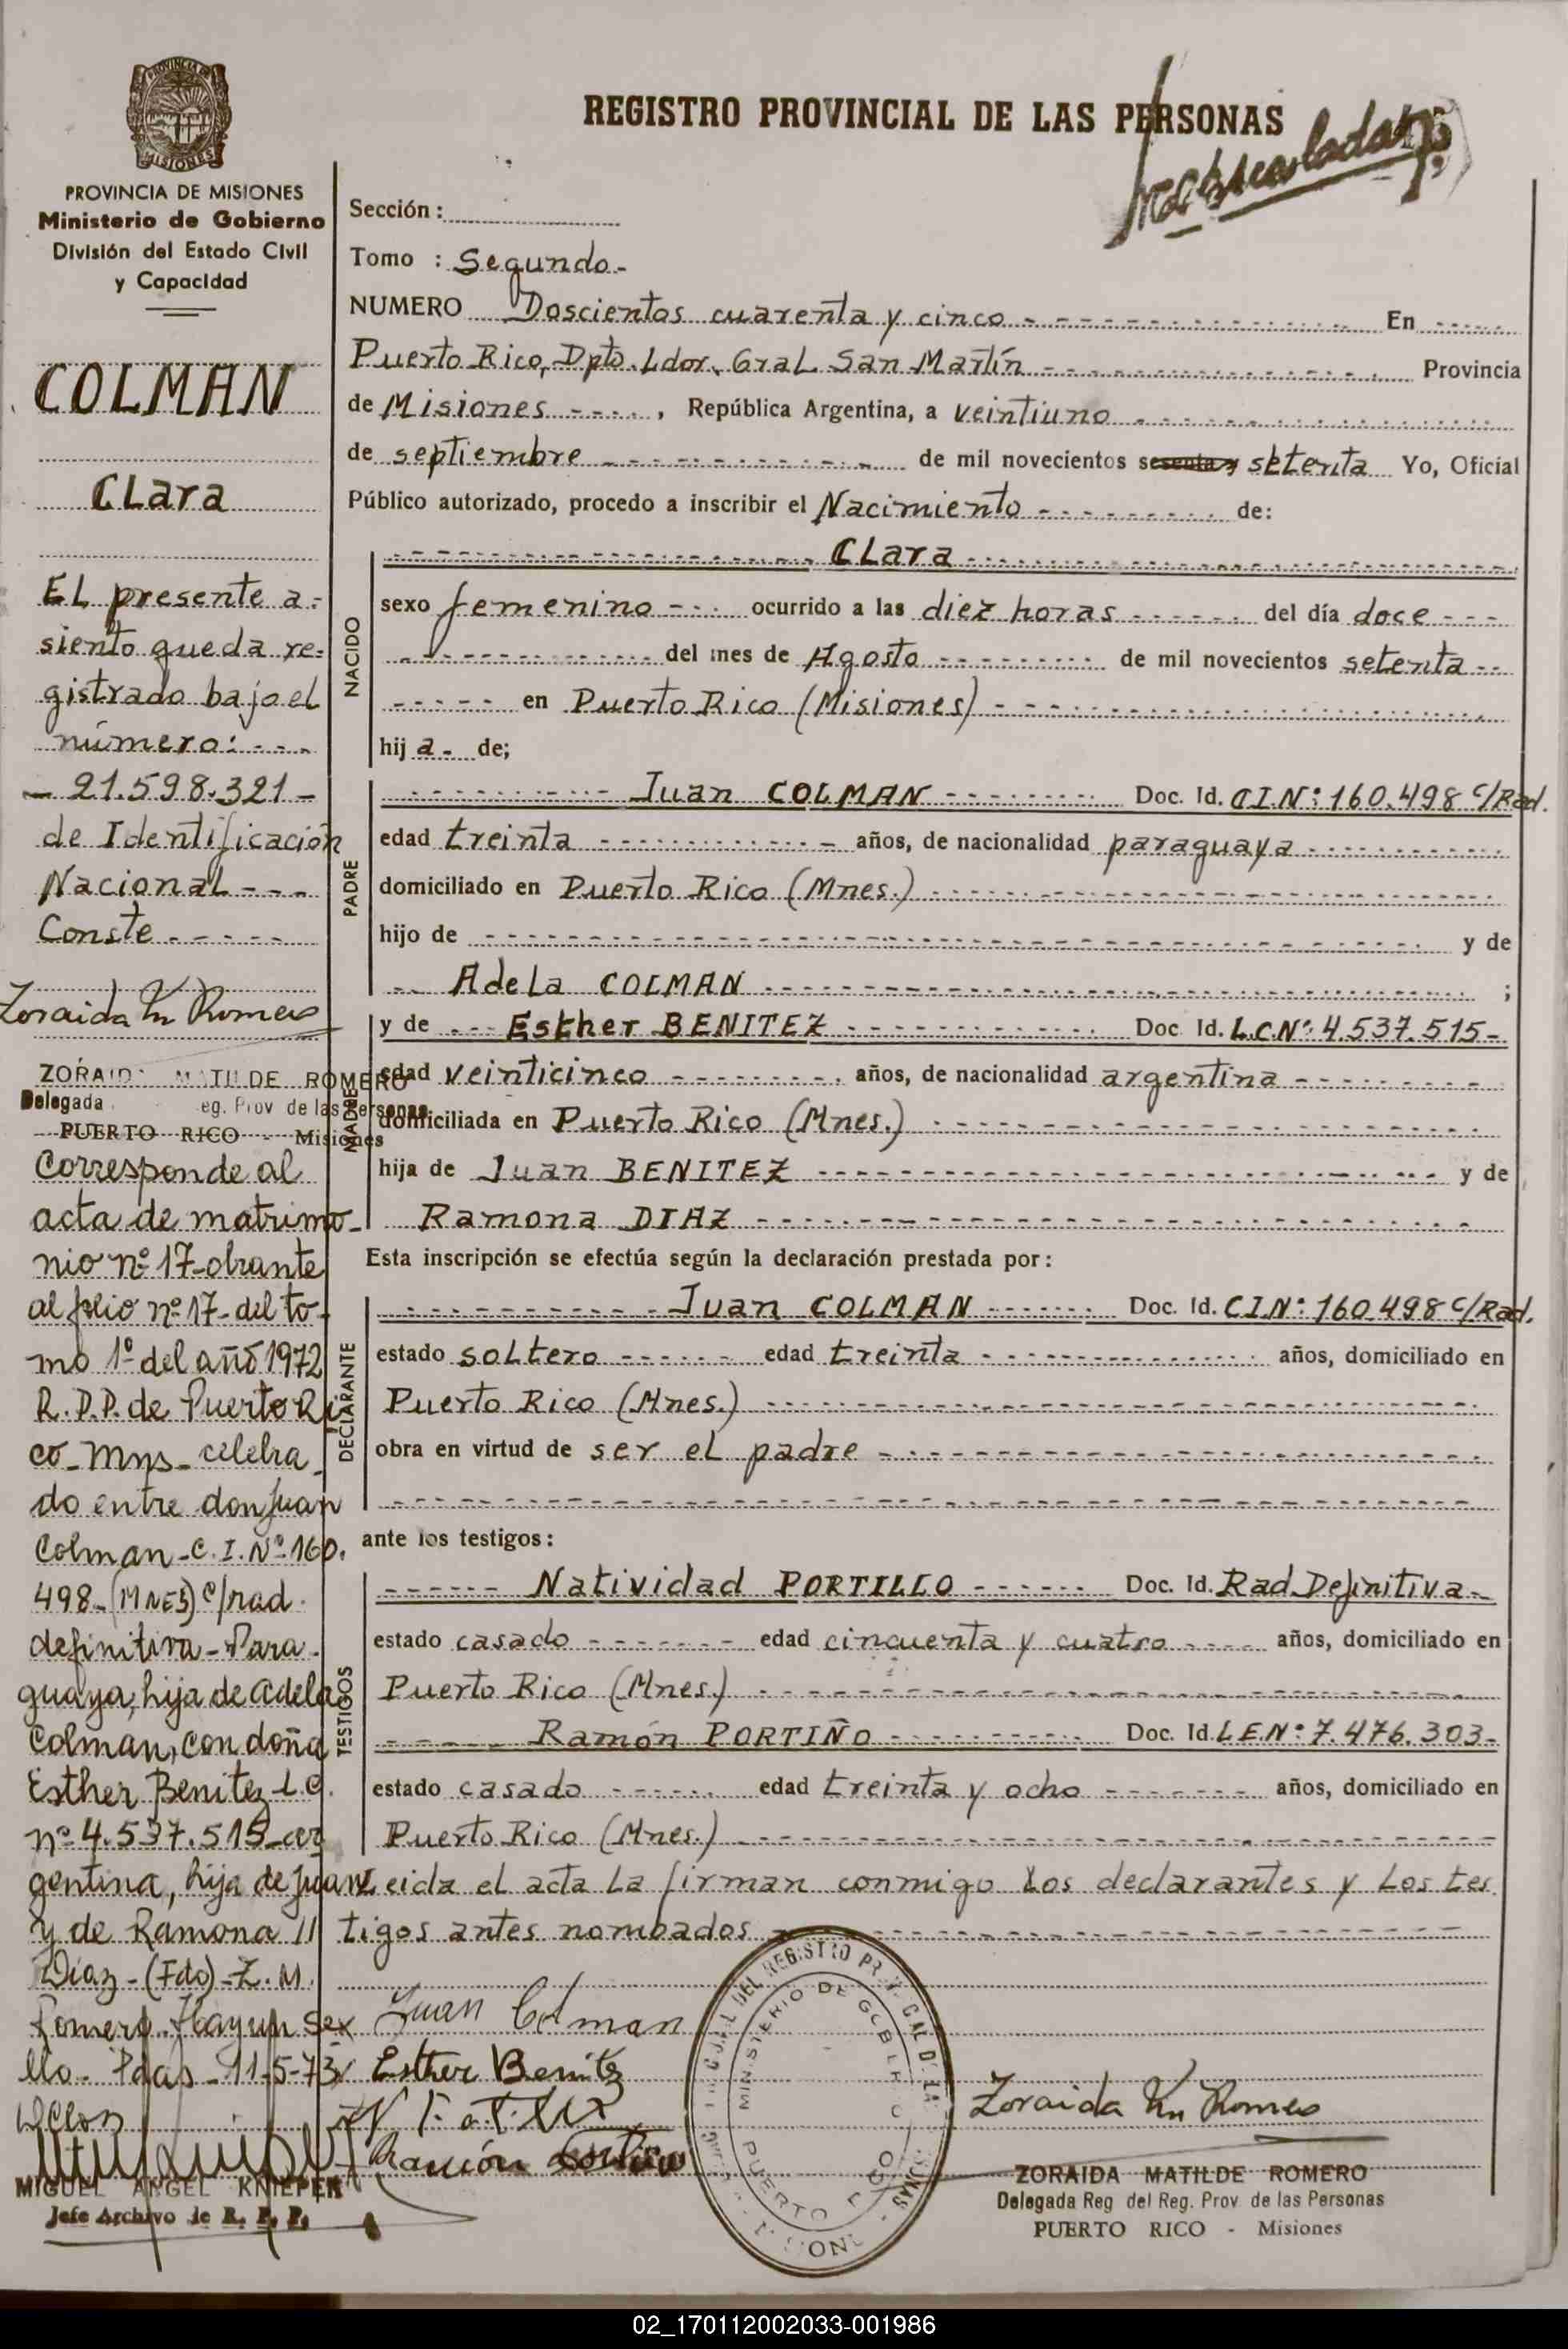 REGISTRO PROVINCIAL DE LAS PERSONAS
PROVINCIA DE MISIONES
Ministerio de Gobierno
División del Estado Civil
y Capacidad
COLMAN
Clara
El presente a-
siento queda re-
gistrado bajo el
número: - - -
- 21.598.321 -
de Identificación
Nacional - - -
Conste - - - - -
Zoraida M Romero
ZORAIDA MATILDE ROMERO
Delegada Reg. Prov de las Personas
PUERTO RICO - Misiones
Corresponde al
acta de matrimo-
nio nº 17-obrante
al folio nº 17- del to-
mo 1º del año 1972
R.P.P. de Puerto Ri
co - Mns - celebra
do entre don Juan
Colman - C.I. Nº 160.
498 - (MNES) c/rad.
definitiva - Para-
guaya, hija de Adela
Colman, con doña
Esther Benitez L.C.
nº 4.537.515 - ar
gentina, hija de Juan
y de Ramona
Diaz - (Fdo) - Z.M.
Romero. Hay un se
llo. Pdas - 11-5-73
MIGUEL ANGEL KNIEPER
Jefe Archivo de R. P. P.
Sección :
Tomo : Segundo -
NUMERO Doscientos cuarenta y cinco - - - En - - -
Puerto Rico, Dpto. Ldor. Gral San Martín - - - Provincia
de Misiones - - - , República Argentina, a veintiuno - - -
de septiembre - - - de mil novecientos sesenta y setenta Yo, Oficial
Público autorizado, procedo a inscribir el Nacimiento - - - de:
NACIDO
- - - Clara - - -
sexo femenino - - - ocurrido a las diez horas - - - del día doce - - -
- - - del mes de Agosto - - - de mil novecientos setenta - -
- - - en Puerto Rico (Misiones) - - -
hij a - de;
PADRE
- - - Juan COLMAN - - - Doc. Id. C.I.Nº: 160.498 c/Rad.
edad treinta - - - años, de nacionalidad paraguaya - - -
domiciliado en Puerto Rico (Mnes.) - - -
hijo de - - - y de
- - Adela COLMAN - - - ;
MADRE
y de - - - Esther BENITEZ - - - Doc. Id. L.C.Nº: 4.537.515 -
edad veinticinco - - - años, de nacionalidad argentina - - -
domiciliada en Puerto Rico (Mnes.) - - -
hija de Juan BENITEZ - - - y de
Ramona DIAZ - - -
Esta inscripción se efectúa según la declaración prestada por :
DECLARANTE
- - - Juan COLMAN - - - Doc. Id. C.I.Nº: 160.498 c/Rad.
estado soltero - - - edad treinta - - - años, domiciliado en
Puerto Rico (Mnes.) - - -
obra en virtud de ser el padre - - -
ante los testigos :
TESTIGOS
- - - Natividad PORTILLO - - - Doc. Id. Rad Definitiva -
estado casado - - - edad cincuenta y cuatro - - - años, domiciliado en
Puerto Rico (Mnes.) - - -
- - - Ramón PORTIÑO - - - Doc. Id. L.E.Nº: 7.476.303 -
estado casado - - - edad treinta y ocho - - - años, domiciliado en
Puerto Rico (Mnes.) - - -
Leida el acta la firman conmigo los declarantes y los tes
tigos antes nombados - - -
Juan Colman
Esther Benitez
Ramón Portiño
MINISTERIO DE GOBIERNO
PUERTO RICO
Zoraida M Romero
ZORAIDA MATILDE ROMERO
Delegada Reg del Reg. Prov de las Personas
PUERTO RICO - Misiones
02_170112002033-001986